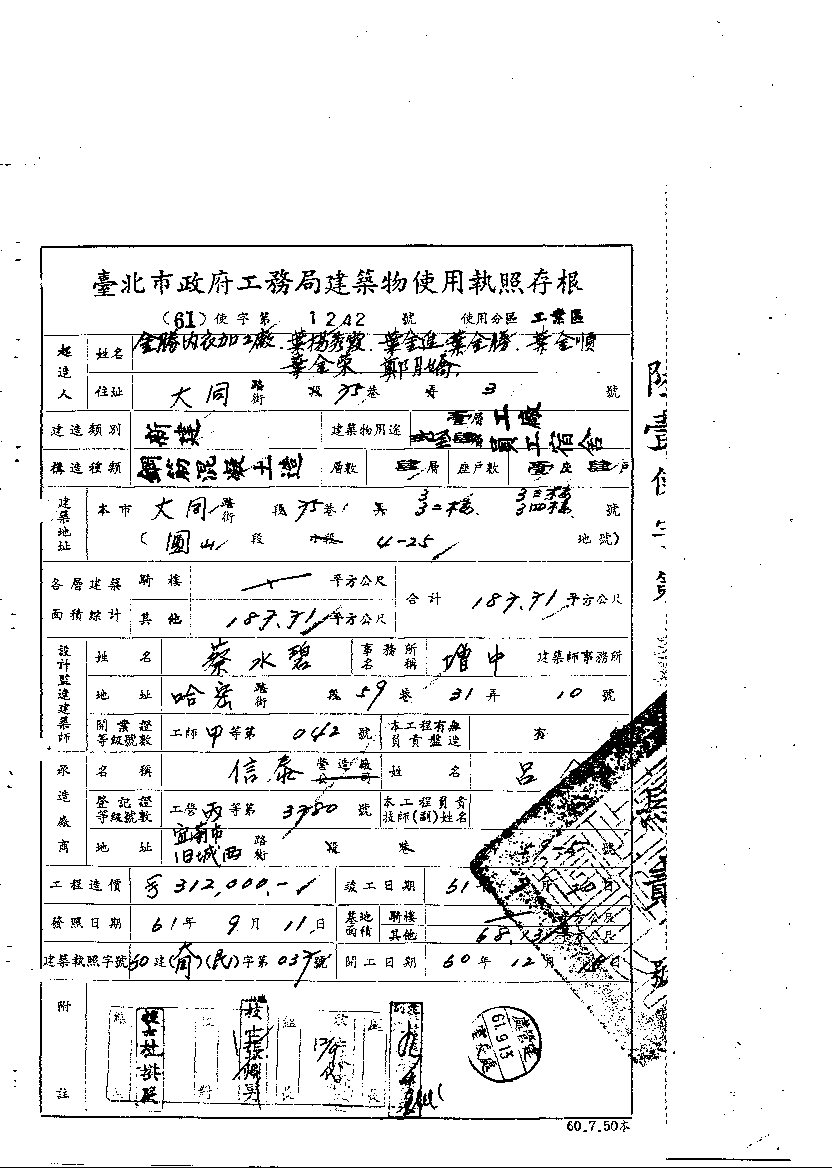 臺北市政府工務局建築物使用執照存根
(61)使字第 1242 號 使用分區 工業區
起造人 姓名 金勝內衣加工廠、葉楊秀霞、葉金進、葉金勝、葉金順
葉金榮 鄭月嬌
住址 大同 路街 段 35巷 弄 3 號
建造類別 新建 建築物用途 壹層工廠
員工宿舍
構造種類 鋼筋混凝土造 層數 肆層 座戶數 壹座肆戶
建築地址 本市 大同 路街 段 35巷 弄 3 3二樓 3三樓 3四樓 號
(圓山 段 小段 4-25 地號)
各層建築面積綜計 騎樓 平方公尺 合計 187.71 平方公尺
其他 187.71 平方公尺
設計監造建築師 姓名 蔡水碧 事務所名稱 增中 建築師事務所
地址 哈密 路街 段 59巷 31弄 10號
開業證等級號數 工師甲等第 042 號 本工程有無負責監造 有
承造廠商 名稱 信泰 營造廠公司 姓名 呂
登記證等級號數 工營丙等第 3780 號 本工程負責技師(副)姓名
地址 宜蘭市
旧城西 路街 段 巷 號
工程造價 312,000.- 竣工日期 61年 月 日
發照日期 61年 9月 11日 基地面積 騎樓 平方公尺
其他 68.13 平方公尺
建築執照字號 60建(大同)(民)字第 037號 開工日期 60年 12月 日
附註
61.9.13
60.7.50本
陸壹使字第
號